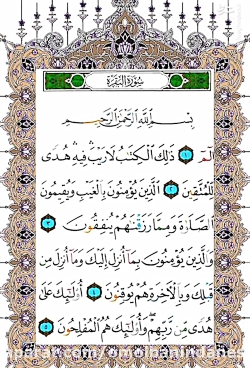 سُورَةُ البَقَرَةِ
بِسْمِ اللَّهِ الرَّحْمَٰنِ الرَّحِيمِ
الٓمٓ ١ ذَٰلِكَ الْكِتَٰبُ لَا رَيْبَ فِيهِ هُدًى
لِّلْمُتَّقِينَ ٢ الَّذِينَ يُؤْمِنُونَ بِالْغَيْبِ وَيُقِيمُونَ
الصَّلَوٰةَ وَمِمَّا رَزَقْنَٰهُمْ يُنفِقُونَ ٣
وَالَّذِينَ يُؤْمِنُونَ بِمَا أُنزِلَ إِلَيْكَ وَمَا أُنزِلَ مِن
قَبْلِكَ وَبِالْآخِرَةِ هُمْ يُوقِنُونَ ٤ أُولَٰئِكَ عَلَىٰ
هُدًى مِّن رَّبِّهِمْ وَأُولَٰئِكَ هُمُ الْمُفْلِحُونَ ٥